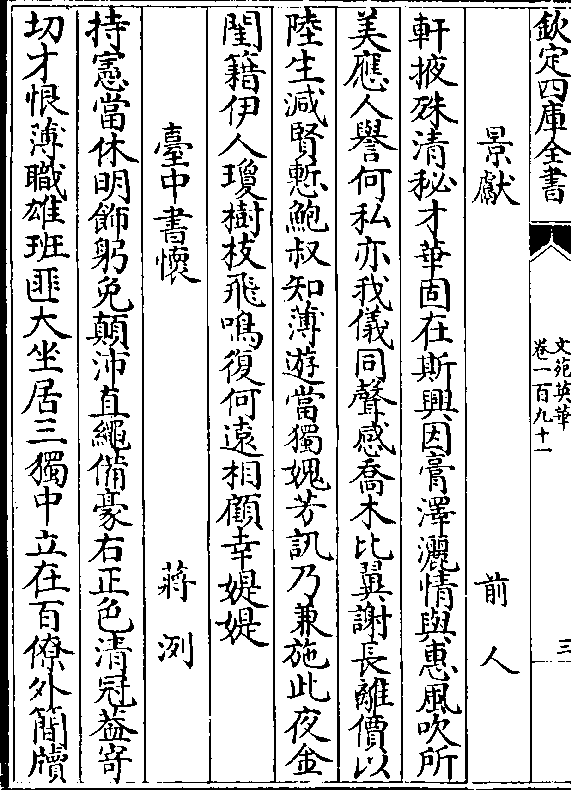 欽定四庫全書
文苑英華
卷一百九十一
三
景獻
前人
軒掖殊清秘才華固在斯興因膏澤灑情與惠風吹所
美應人譽何私亦我儀同聲感喬木比翼謝長離價以
陸生減賢慙鮑叔知薄遊當獨媿芳訊乃兼施此夜金
閨籍伊人瓊樹枝飛鳴復何遠相顧幸媞媞
臺中書懷
蔣洌
持憲當休明飾躬免顛沛直繩備豪右正色清冠葢寄
切才恨薄職雄班匪大坐居三獨中立在百僚外簡牘